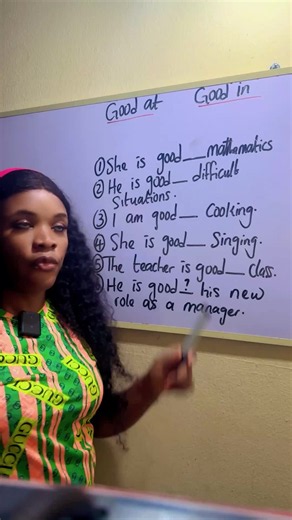 Good at Good in
① She is good __ mathematics
② He is good __ difficult
Situations.
③ I am good __ Cooking.
④ She is good __ Singing.
⑤ The teacher is good __ Class.
He is good ? his new
role as a manager.
GUCCI
GUCCI
GUCCI